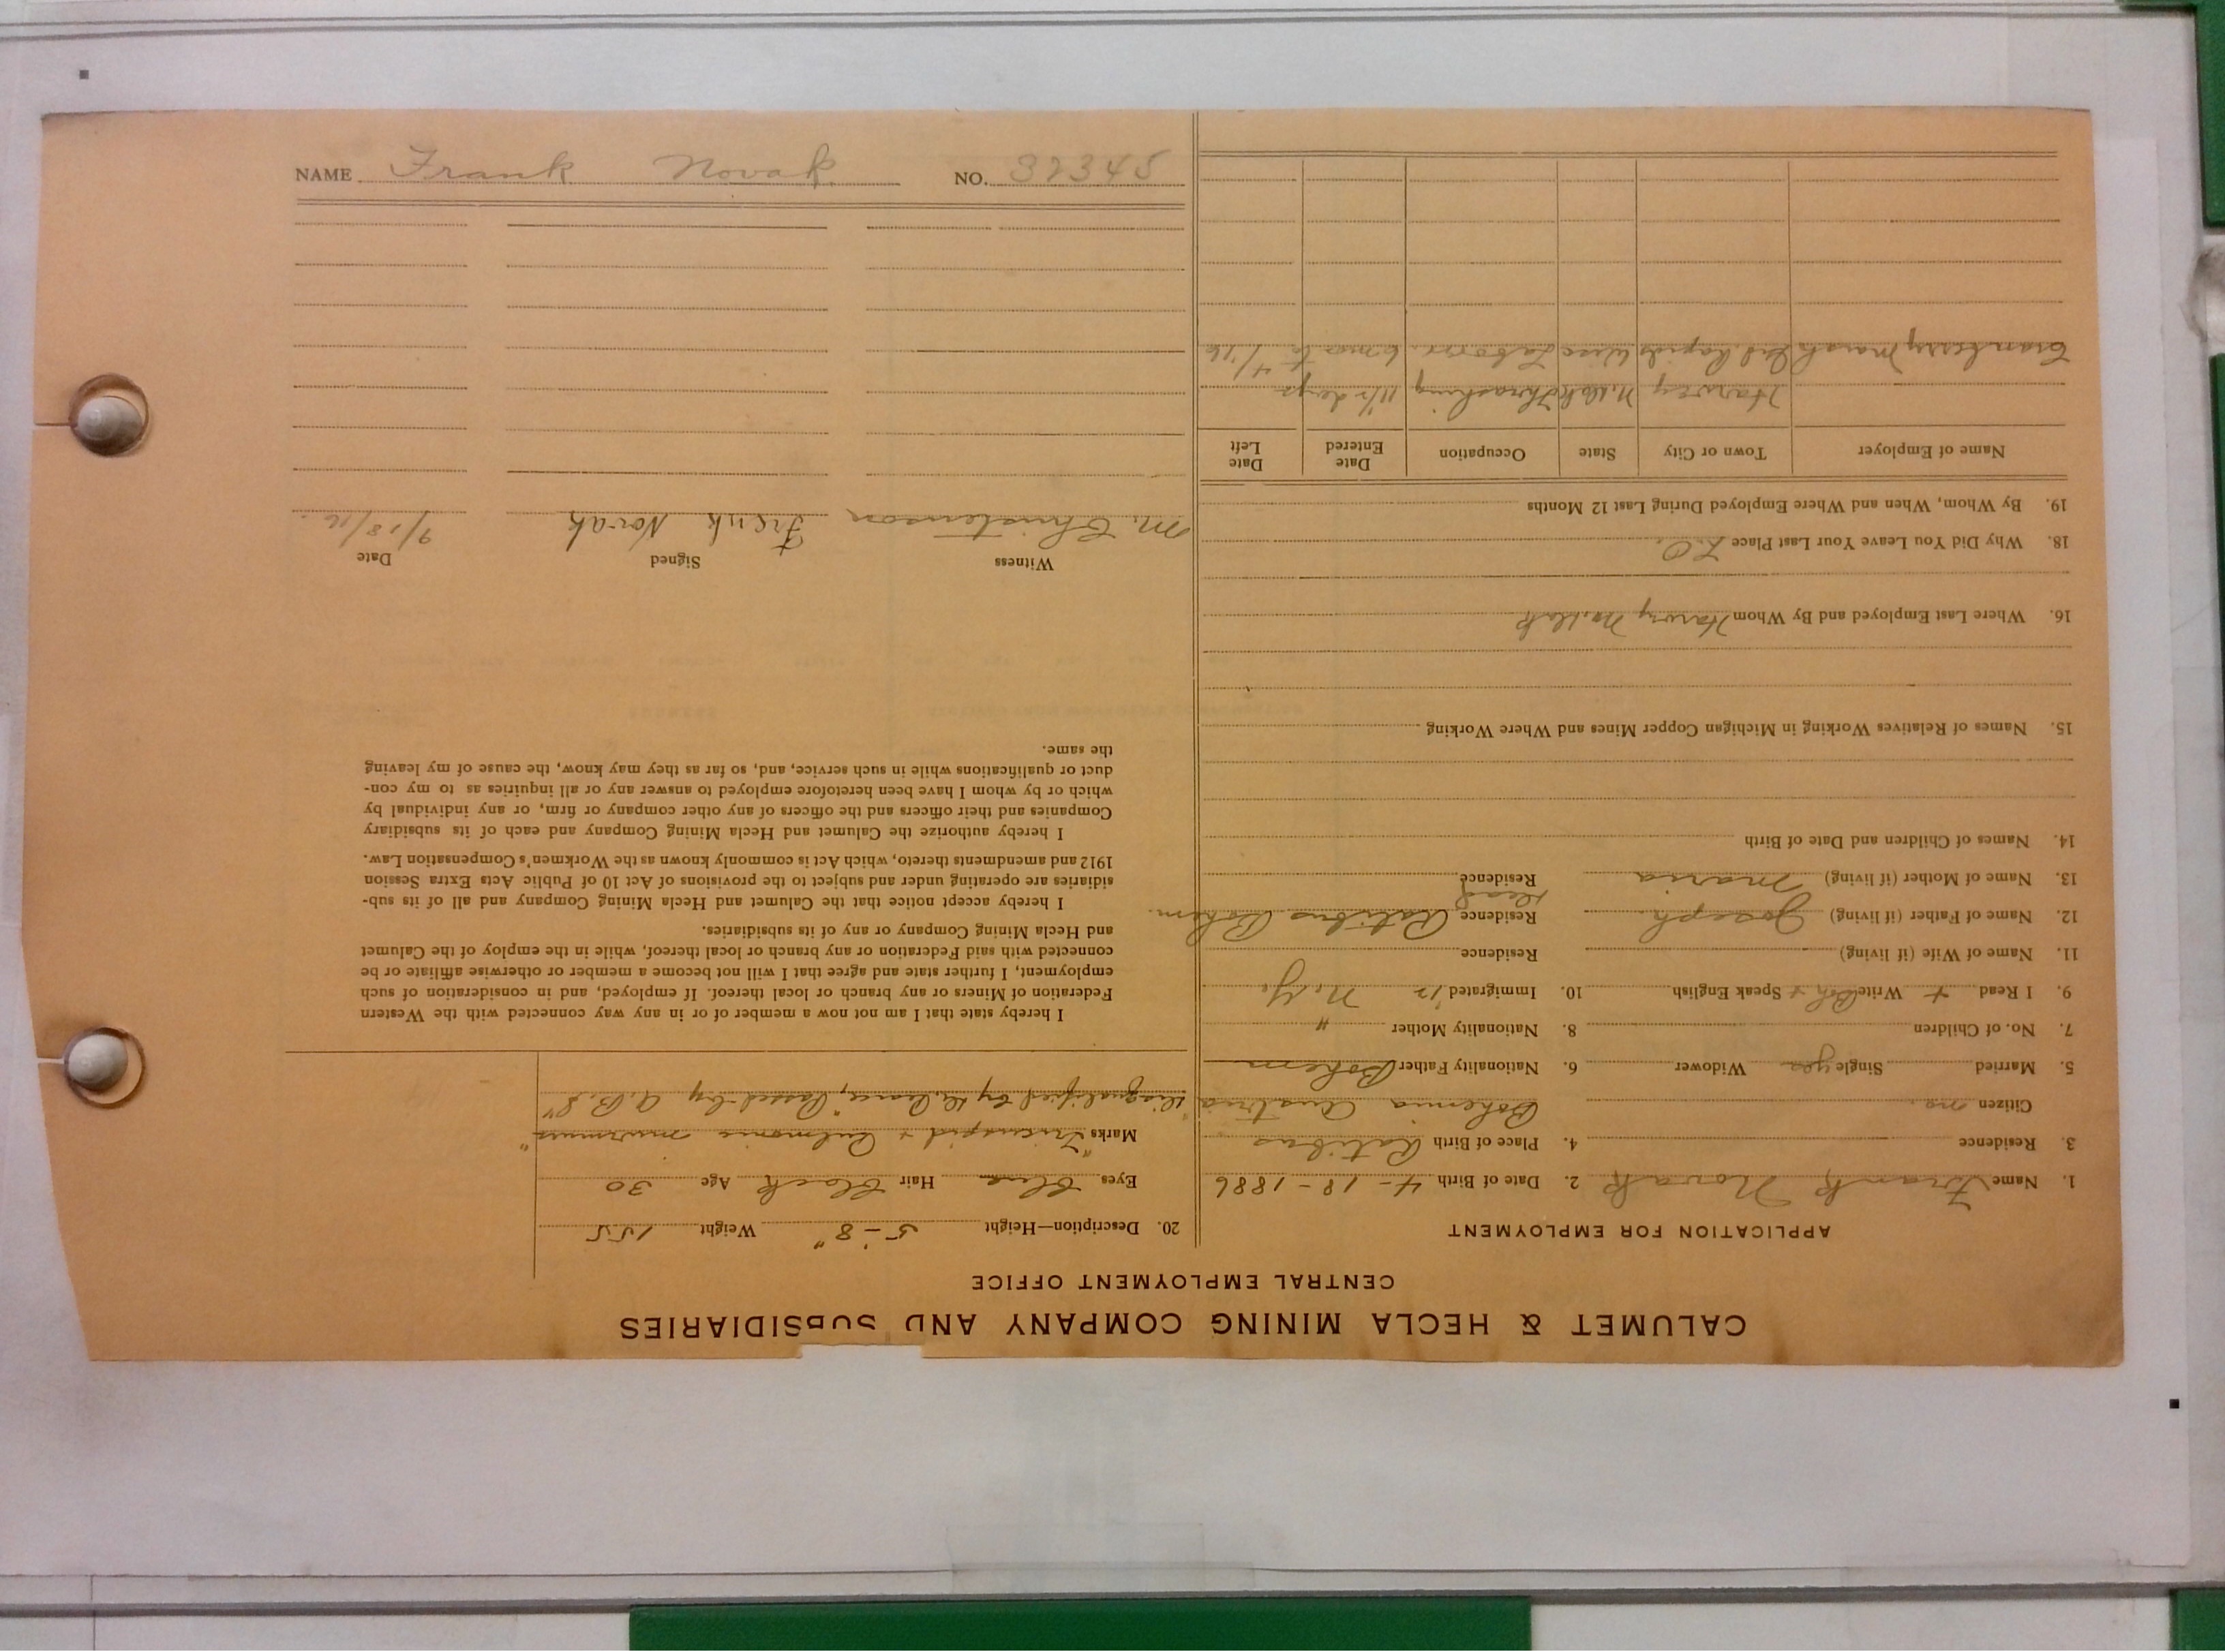 CALUMET & HECLA MINING COMPANY AND SUBSIDIARIES
CENTRAL EMPLOYMENT OFFICE
APPLICATION FOR EMPLOYMENT
1. Name Frank Novak 2. Date of Birth 4-18-1886
3. Residence 4. Place of Birth Ratibus
Citizen no. Bohemia Austria
5. Married Single yes Widower 6. Nationality Father Bohem
7. No. of Children 8. Nationality Mother "
9. I Read + Write Boh + Speak English 10. Immigrated '12 N.Y.
11. Name of Wife (if living) Residence
12. Name of Father (if living) Joseph Residence Ratibus Bohem.
13. Name of Mother (if living) Maria Residence Dead
14. Names of Children and Date of Birth
15. Names of Relatives Working in Michigan Copper Mines and Where Working
16. Where Last Employed and By Whom Harvey No. Dak
18. Why Did You Leave Your Last Place
19. By Whom, When and Where Employed During Last 12 Months
Name of Employer Town or City State Occupation Date Entered Date Left
Harvey N. Dak Thrashing 11½ days
Cranberry Marsh Gd. Rapids Wisc Laborer. 6 mos to 4/16
20. Description—Height 5'-8" Weight 155
Eyes Blue Hair Black Age 30
Marks "Tricuspid + Pulmonic murmurs"
"Disqualified by Passed by A.B.S"
I hereby state that I am not now a member of or in any way connected with the Western
Federation of Miners or any branch or local thereof. If employed, and in consideration of such
employment, I further state and agree that I will not become a member or otherwise affiliate or be
connected with said Federation or any branch or local thereof, while in the employ of the Calumet
and Hecla Mining Company or any of its subsidiaries.
I hereby accept notice that the Calumet and Hecla Mining Company and all of its sub-
sidiaries are operating under and subject to the provisions of Act 10 of Public Acts Extra Session
1912 and amendments thereto, which Act is commonly known as the Workmen's Compensation Law.
I hereby authorize the Calumet and Hecla Mining Company and each of its subsidiary
Companies and their officers and the officers of any other company or firm, or any individual by
which or by whom I have been heretofore employed to answer any or all inquiries as to my con-
duct or qualifications while in such service, and, so far as they may know, the cause of my leaving
the same.
Witness Signed Date
M. Christenson Frenk Novak 9/18/16.
NAME Frank Novak. NO. 32345